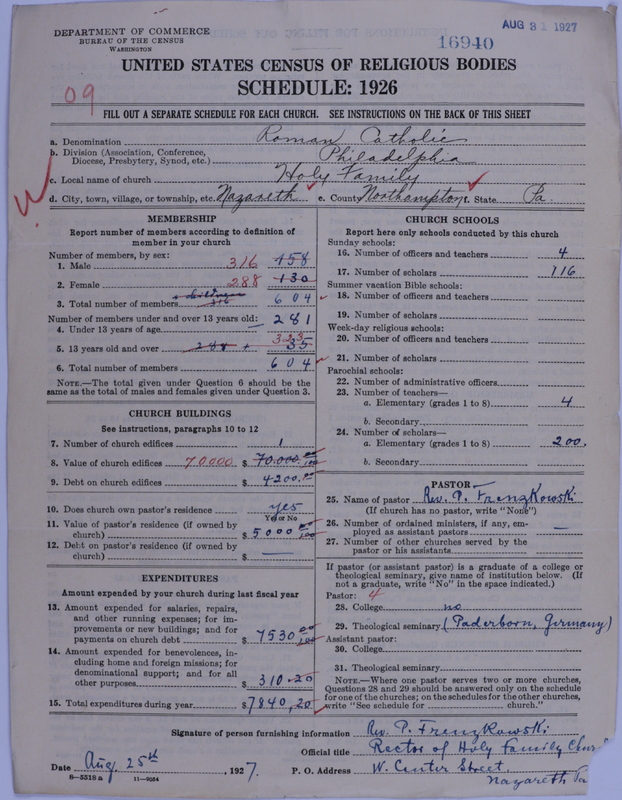 AUG 31 1927
DEPARTMENT OF COMMERCE
BUREAU OF THE CENSUS
WASHINGTON
16940
UNITED STATES CENSUS OF RELIGIOUS BODIES
SCHEDULE: 1926
09
FILL OUT A SEPARATE SCHEDULE FOR EACH CHURCH. SEE INSTRUCTIONS ON THE BACK OF THIS SHEET
a. Denomination Roman Catholic
b. Division (Association, Conference, Diocese, Presbytery, Synod, etc.) Philadelphia
c. Local name of church Holy Family
d. City, town, village, or township, etc. Nazareth e. County Northampton f. State Pa.
MEMBERSHIP
Report number of members according to definition of
member in your church
Number of members, by sex:
1. Male 316 158
2. Female 288 130
3. Total number of members 604
Number of members under and over 13 years old:
4. Under 13 years of age 281
5. 13 years old and over 288 + 35 323
6. Total number of members 604
NOTE.—The total given under Question 6 should be the
same as the total of males and females given under Question 3.
CHURCH BUILDINGS
See instructions, paragraphs 10 to 12
7. Number of church edifices 1
8. Value of church edifices 70000 $ 70.000.00/100
9. Debt on church edifices $ 4200.00
10. Does church own pastor's residence yes
Yes or No
11. Value of pastor's residence (if owned by
church) $ 5000 00/100
12. Debt on pastor's residence (if owned by
church) $ —
EXPENDITURES
Amount expended by your church during last fiscal year
13. Amount expended for salaries, repairs,
and other running expenses; for im-
provements or new buildings; and for
payments on church debt $ 7530 00/100
14. Amount expended for benevolences, in-
cluding home and foreign missions; for
denominational support; and for all
other purposes $ 310.20
15. Total expenditures during year $ 7840,20
CHURCH SCHOOLS
Report here only schools conducted by this church
Sunday schools:
16. Number of officers and teachers 4
17. Number of scholars 116
Summer vacation Bible schools:
18. Number of officers and teachers
19. Number of scholars
Week-day religious schools:
20. Number of officers and teachers
21. Number of scholars
Parochial schools:
22. Number of administrative officers
23. Number of teachers—
a. Elementary (grades 1 to 8) 4
b. Secondary
24. Number of scholars—
a. Elementary (grades 1 to 8) 200.
b. Secondary
PASTOR
25. Name of pastor Rev. P. Frenzkowski
(If church has no pastor, write "None")
26. Number of ordained ministers, if any, em-
ployed as assistant pastors —
27. Number of other churches served by the
pastor or his assistants
If pastor (or assistant pastor) is a graduate of a college or
theological seminary, give name of institution below. (If
not a graduate, write "No" in the space indicated.)
Pastor: 4
28. College no
29. Theological seminary (Paderborn, Germany)
Assistant pastor:
30. College
31. Theological seminary
NOTE.—Where one pastor serves two or more churches,
Questions 28 and 29 should be answered only on the schedule
for one of the churches; on the schedules for the other churches,
write "See schedule for church."
Signature of person furnishing information Rev. P. Frenzkowski
Official title Rector of Holy Family Church
Date Aug. 25th, 1927. P. O. Address W. Center Street.
Nazareth Pa
8—5518a 11—9084